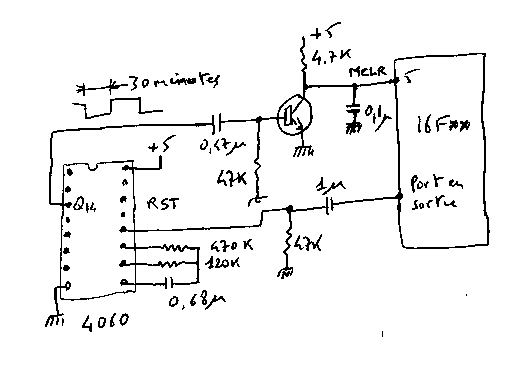 +5
4.7K
30 minutes
MCLR
5
0,1µ
16F**
0,47µ
+5
47K
1µ
Port en
sortie
Q14
RST
470K
47K
120K
0,68µ
4060